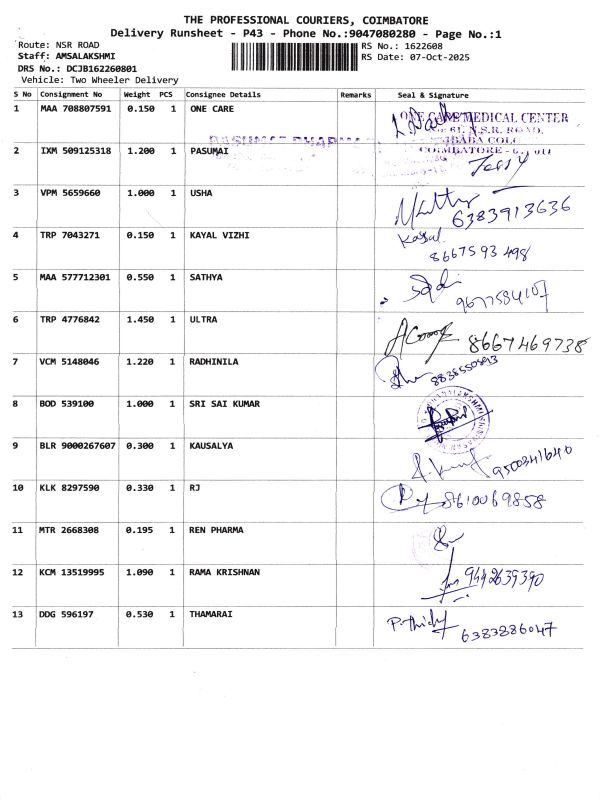 THE PROFESSIONAL COURIERS, COIMBATORE
Delivery Runsheet - P43 - Phone No.:9047080280 - Page No.:1
Route: NSR ROAD RS No.: 1622608
Staff: AMSALAKSHMI RS Date: 07-Oct-2025
DRS No.: DCJB162260801
Vehicle: Two Wheeler Delivery
S No Consignment No Weight PCS Consignee Details Remarks Seal & Signature
1 MAA 708807591 0.150 1 ONE CARE
ONE CARE MEDICAL CENTER
61, N.S.R. ROAD,
2 IXM 509125318 1.200 1 PASUMAI
COIMBATORE
3 VPM 5659660 1.000 1 USHA
6383913636
4 TRP 7043271 0.150 1 KAYAL VIZHI Kayal
8667593498
5 MAA 577712301 0.550 1 SATHYA
9677584107
6 TRP 4776842 1.450 1 ULTRA
8667469738
7 VCM 5148046 1.220 1 RADHINILA
8 BOD 539100 1.000 1 SRI SAI KUMAR
9 BLR 9000267607 0.300 1 KAUSALYA
9500341640
10 KLK 8297590 0.330 1 RJ
8610069858
11 MTR 2668308 0.195 1 REN PHARMA
12 KCM 13519995 1.090 1 RAMA KRISHNAN
9442639390
13 DDG 596197 0.530 1 THAMARAI
6383886047